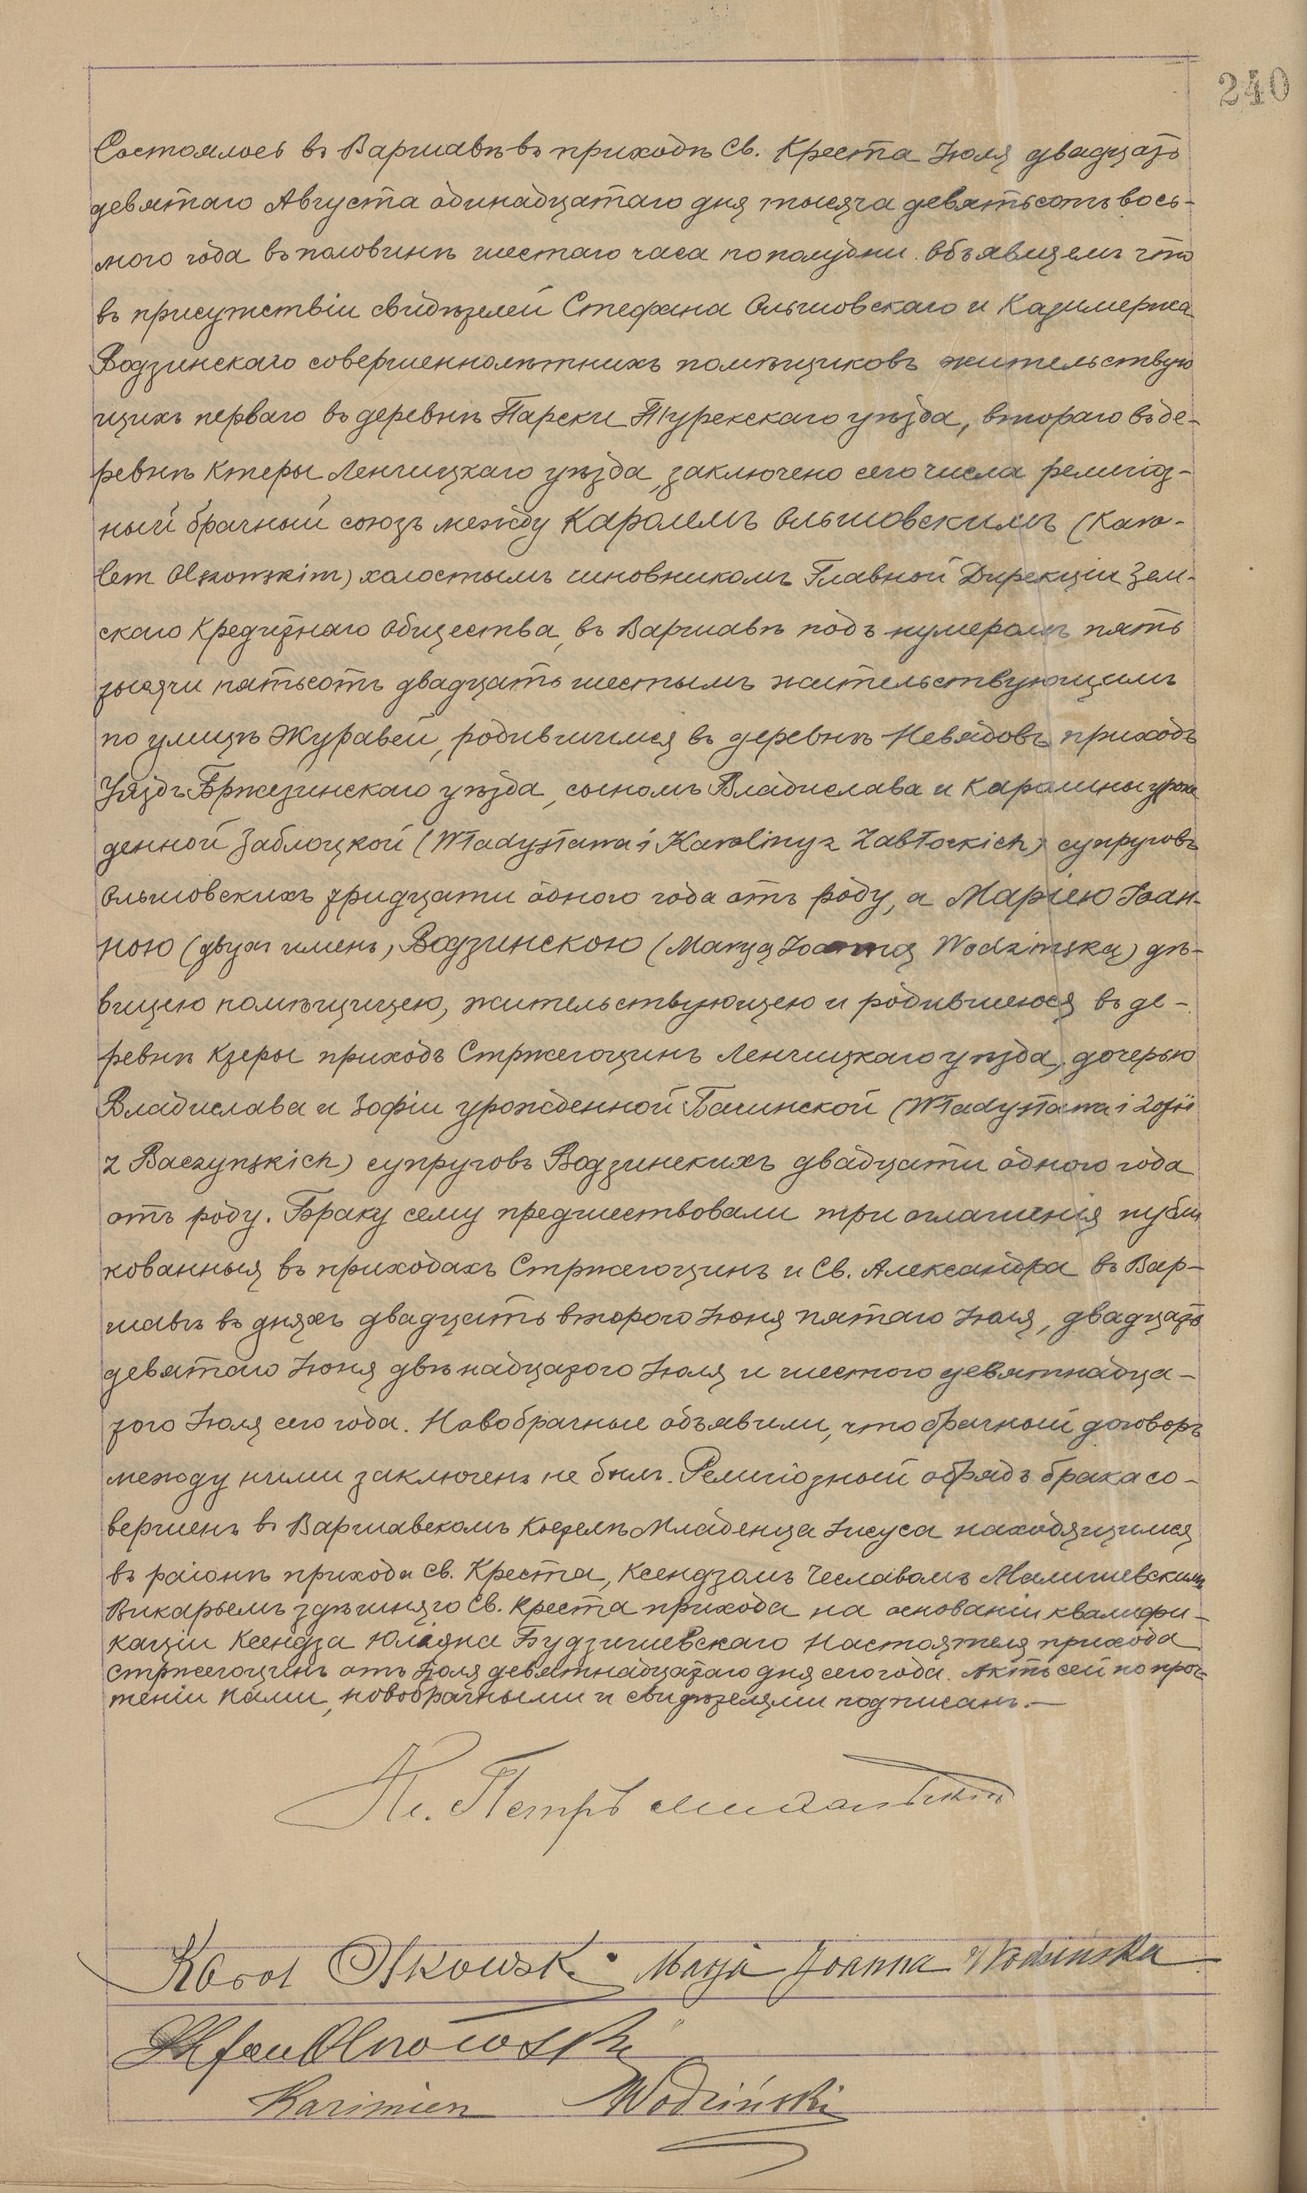 240
Состоялось въ Варшавѣ въ приходѣ Св. Креста Іюля двадцать
девятаго Августа одинадцатаго дня тысяча девятьсотъ вось-
мого года въ половинѣ шестаго часа пополудни. Объявляемъ что
въ присутствіи свидѣтелей Стефана Ольшовскаго и Казимержа
Водзинскаго совершеннолѣтнихъ помѣщиковъ жительствую
щихъ перваго въ деревнѣ Парски Турекскаго уѣзда, втораго въ де-
ревнѣ Ктеры Ленчицкаго уѣзда, заключено сего числа религіоз-
ный брачный союзъ между Каролемъ Ольшовскимъ (Karo-
lem Olszowskim) холостымъ чиновникомъ Главной Дирекціи Зем-
скаго Кредитнаго Общества, въ Варшавѣ подъ нумеромъ пять
тысячи пятьсотъ двадцать шестымъ жительствующимъ
по улицѣ Журавей, родившимся въ деревнѣ Невядовъ приходъ
Уяздъ Бржезинскаго уѣзда, сыномъ Владислава и Каролины урож
денной Заблоцкой (Władysława i Karoliny z Zabłockich) супруговъ
Ольшовскихъ тридцати одного года отъ роду, а Маріею Іоан-
ною (двухъ именъ) Водзинскою (Maryą Joanną Wodzinską) дѣ-
вицею помѣщицею, жительствующею и родившеюся въ де-
ревнѣ Ктеры приходъ Стржегоцинъ Ленчицкаго уѣзда, дочерью
Владислава и Зофіи урожденной Бачинской (Władysława i Zofii
z Baczynskich) супруговъ Водзинскихъ двадцати одного года
отъ роду. Браку сему предшествовали три оглашенія публи
кованныя въ приходахъ Стржегоцинъ и Св. Александра въ Вар-
шавѣ въ дняхъ двадцать второго Іюня пятаго Іюля, двадцать
девятаго Іюня двѣнадцатого Іюля и шестого девятнадца-
того Іюля сего года. Новобрачные объявили, что брачный договоръ
между ними заключенъ не былъ. Религіозный обрядъ брака со-
вершенъ въ Варшавскомъ Костелѣ Младенца Іисуса находящимся
въ районѣ прихода Св. Креста, Ксендзомъ Чеславомъ Малишевскимъ
Викарьемъ здѣшняго Св. Креста прихода на основаніи квалифи-
каціи Ксендза Юліяна Будзишевскаго Настоятеля прихода
Стржегоцинъ отъ Іюля девятнадцатаго дня сего года. Актъ сей по проч-
теніи Нами, новобрачными и свидѣтелями подписанъ.—
Кс. Петръ
Karol Olszowski Marja Joanna Wodzińska
Stefan Olszowski
Kazimierz Wodziński